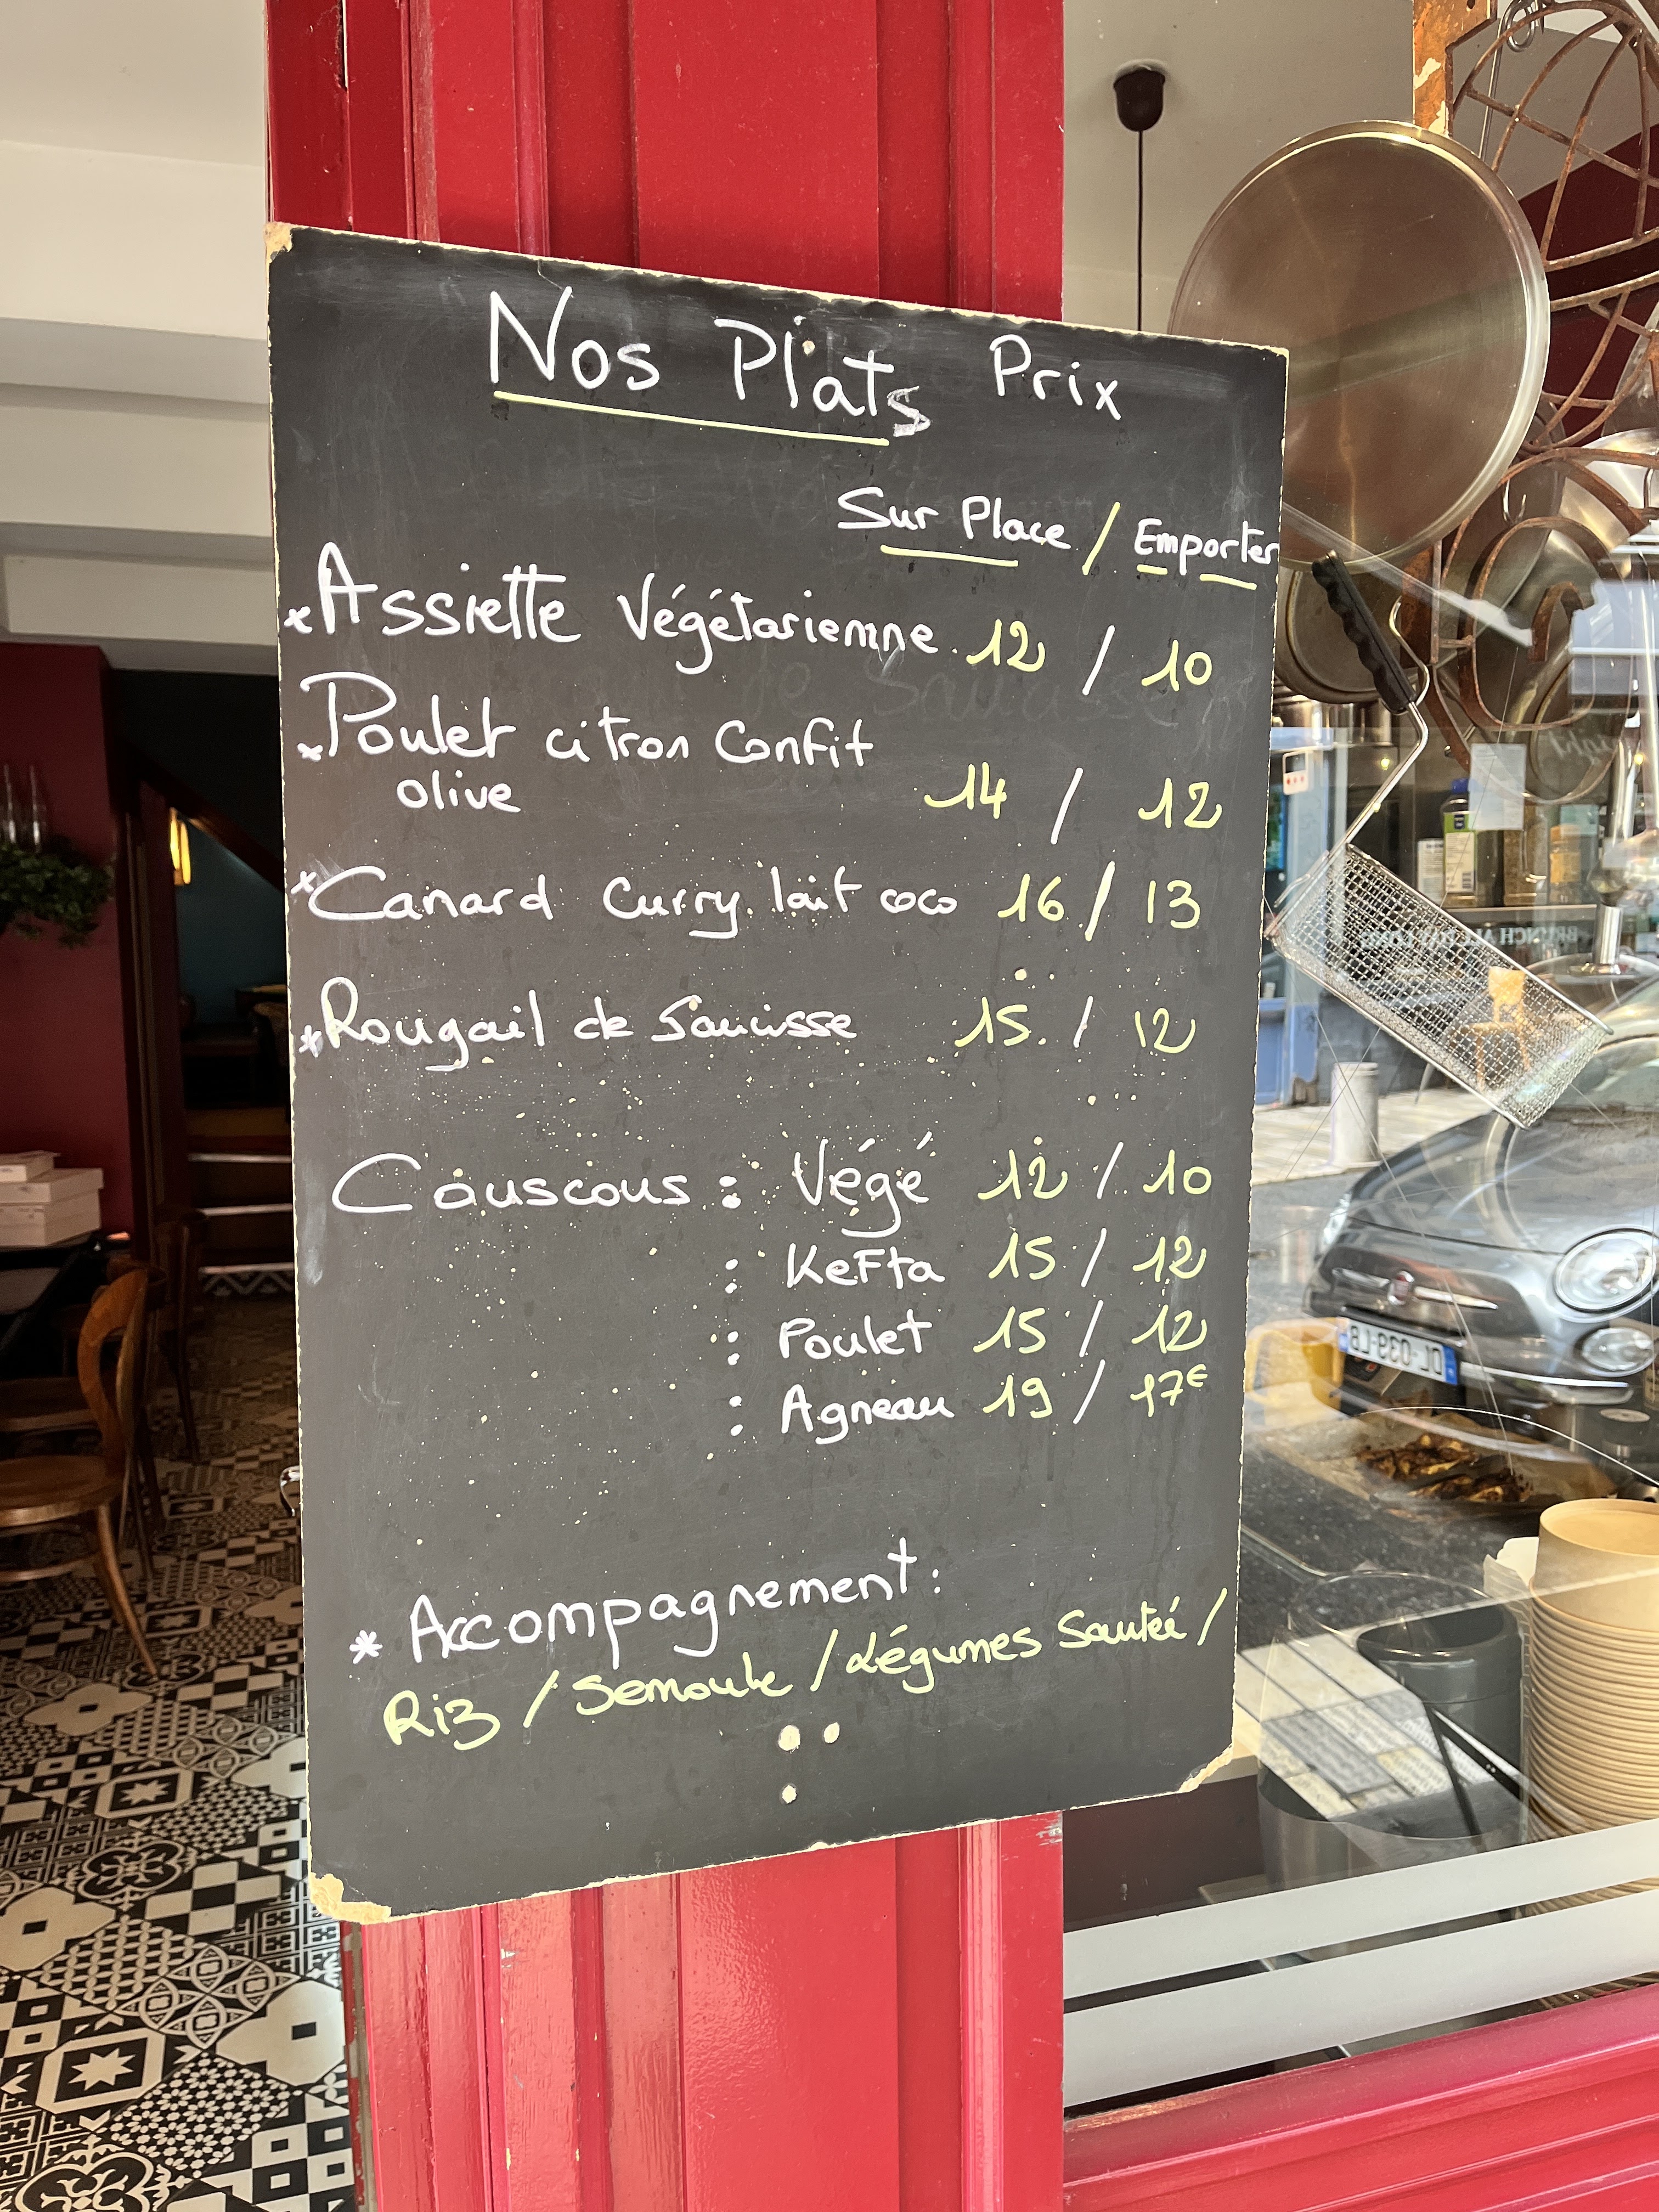 Nos Plats Prix
Sur Place / Emporter
* Assiette Végétarienne 12 / 10
* Poulet citron Confit
olive 14 / 12
* Canard Curry lait coco 16 / 13
* Rougail de Saucisse 15 / 12
Couscous : Végé 12 / 10
: Kefta 15 / 12
: Poulet 15 / 12
: Agneau 19 / 17€
* Accompagnement :
Riz / Semoule / Légumes Sauteé /
DL-039-LB